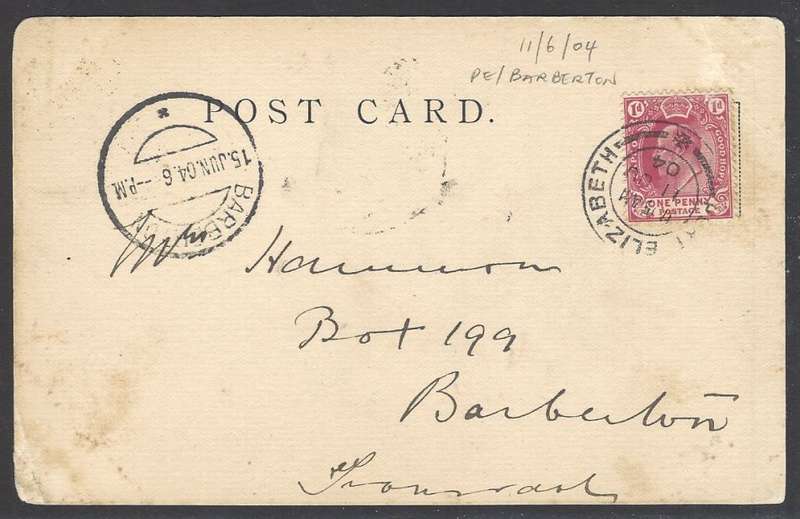 11/6/04
PE/BARBERTON
POST CARD.
1d 1d
GOOD HOPE
ONE PENNY
POSTAGE
PORT ELIZABETH
11
04
15.JUN.04.6-P.M
BARBERTON
Hammon
Box 199
Barberton
Transvaal